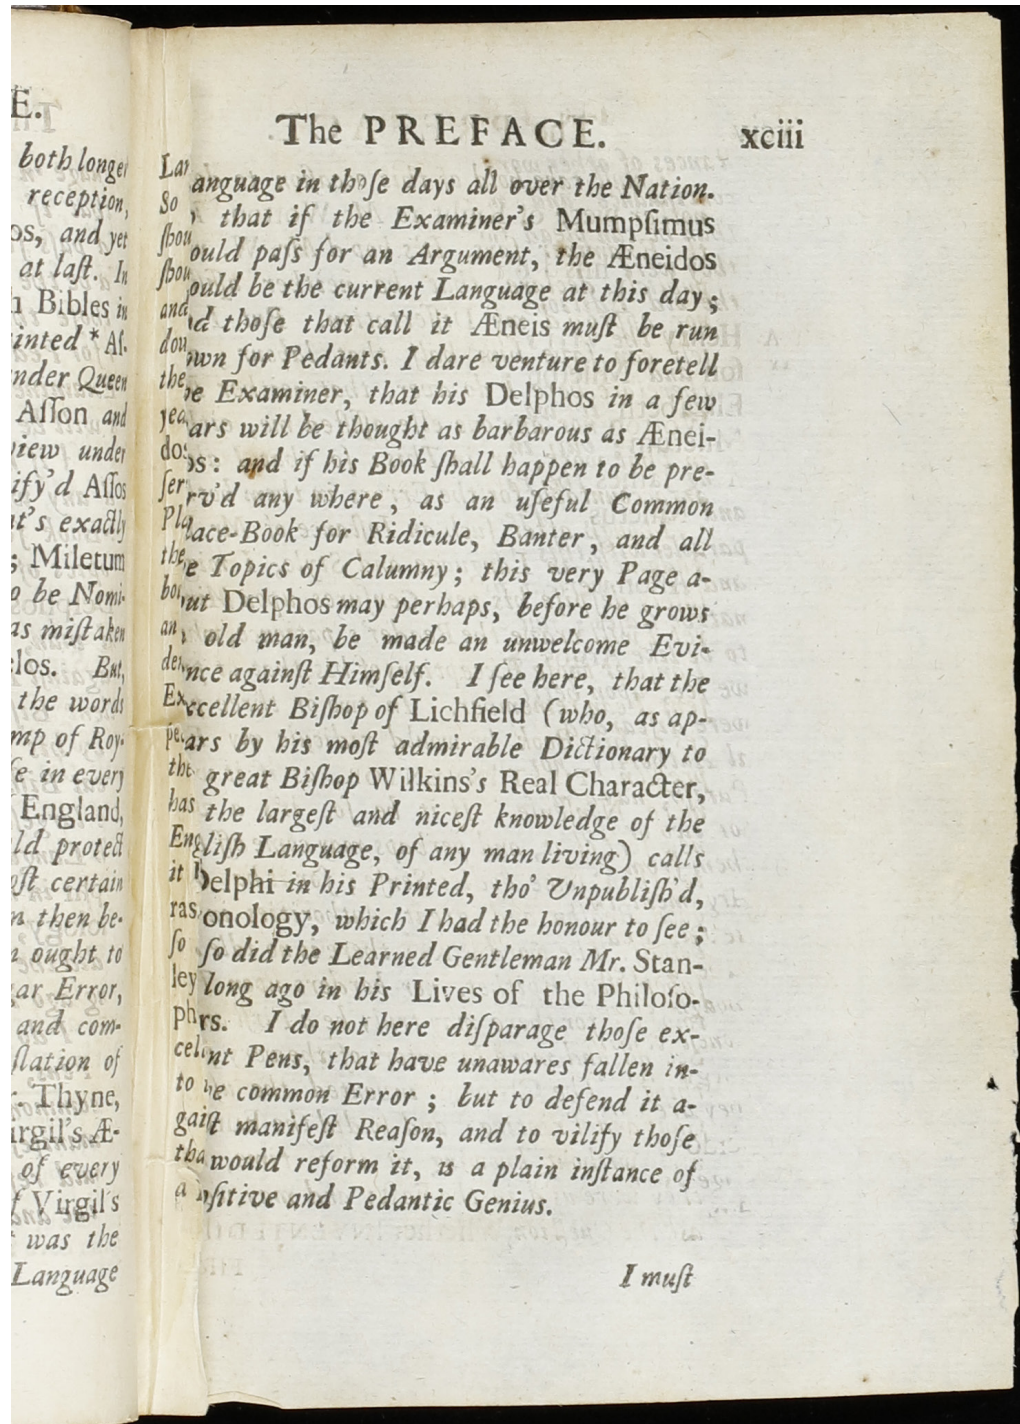 E.
both longer
reception,
os, and yet
at laſt. In
n Bibles in
inted * Aſ-
nder Queen
Aſſon and
view under
ify'd Aſſos
at's exactly
; Miletum
o be Nomi-
as miſtaken
elos. But,
the words
mp of Roy-
ſe in every
England,
ld protect
oſt certain
n then be-
n ought to
ar Error,
and com-
ſlation of
r. Thyne,
irgil's Æ-
of every
f Virgil's
was the
Language
The PREFACE. xciii
Language in thoſe days all over the Nation.
So that if the Examiner's Mumpſimus
ſhould paſs for an Argument, the Æneidos
ſhould be the current Language at this day;
and thoſe that call it Æneis muſt be run
down for Pedants. I dare venture to foretell
the Examiner, that his Delphos in a few
years will be thought as barbarous as Ænei-
dos: and if his Book ſhall happen to be pre-
ſerv'd any where, as an uſeful Common
Place-Book for Ridicule, Banter, and all
the Topics of Calumny; this very Page a-
bout Delphos may perhaps, before he grows
an old man, be made an unwelcome Evi-
dence againſt Himſelf. I ſee here, that the
Excellent Biſhop of Lichfield (who, as ap-
pears by his moſt admirable Dictionary to
the great Biſhop Wilkins's Real Character,
has the largeſt and niceſt knowledge of the
Engliſh Language, of any man living) calls
it Delphi in his Printed, tho' Unpubliſh'd,
onology, which I had the honour to ſee;
ſo did the Learned Gentleman Mr. Stan-
ley long ago in his Lives of the Philoſo-
phers. I do not here diſparage thoſe ex-
cellent Pens, that have unawares fallen in-
to the common Error; but to defend it a-
gainſt manifeſt Reaſon, and to vilify thoſe
that would reform it, is a plain inſtance of
a Poſitive and Pedantic Genius.
I muſt